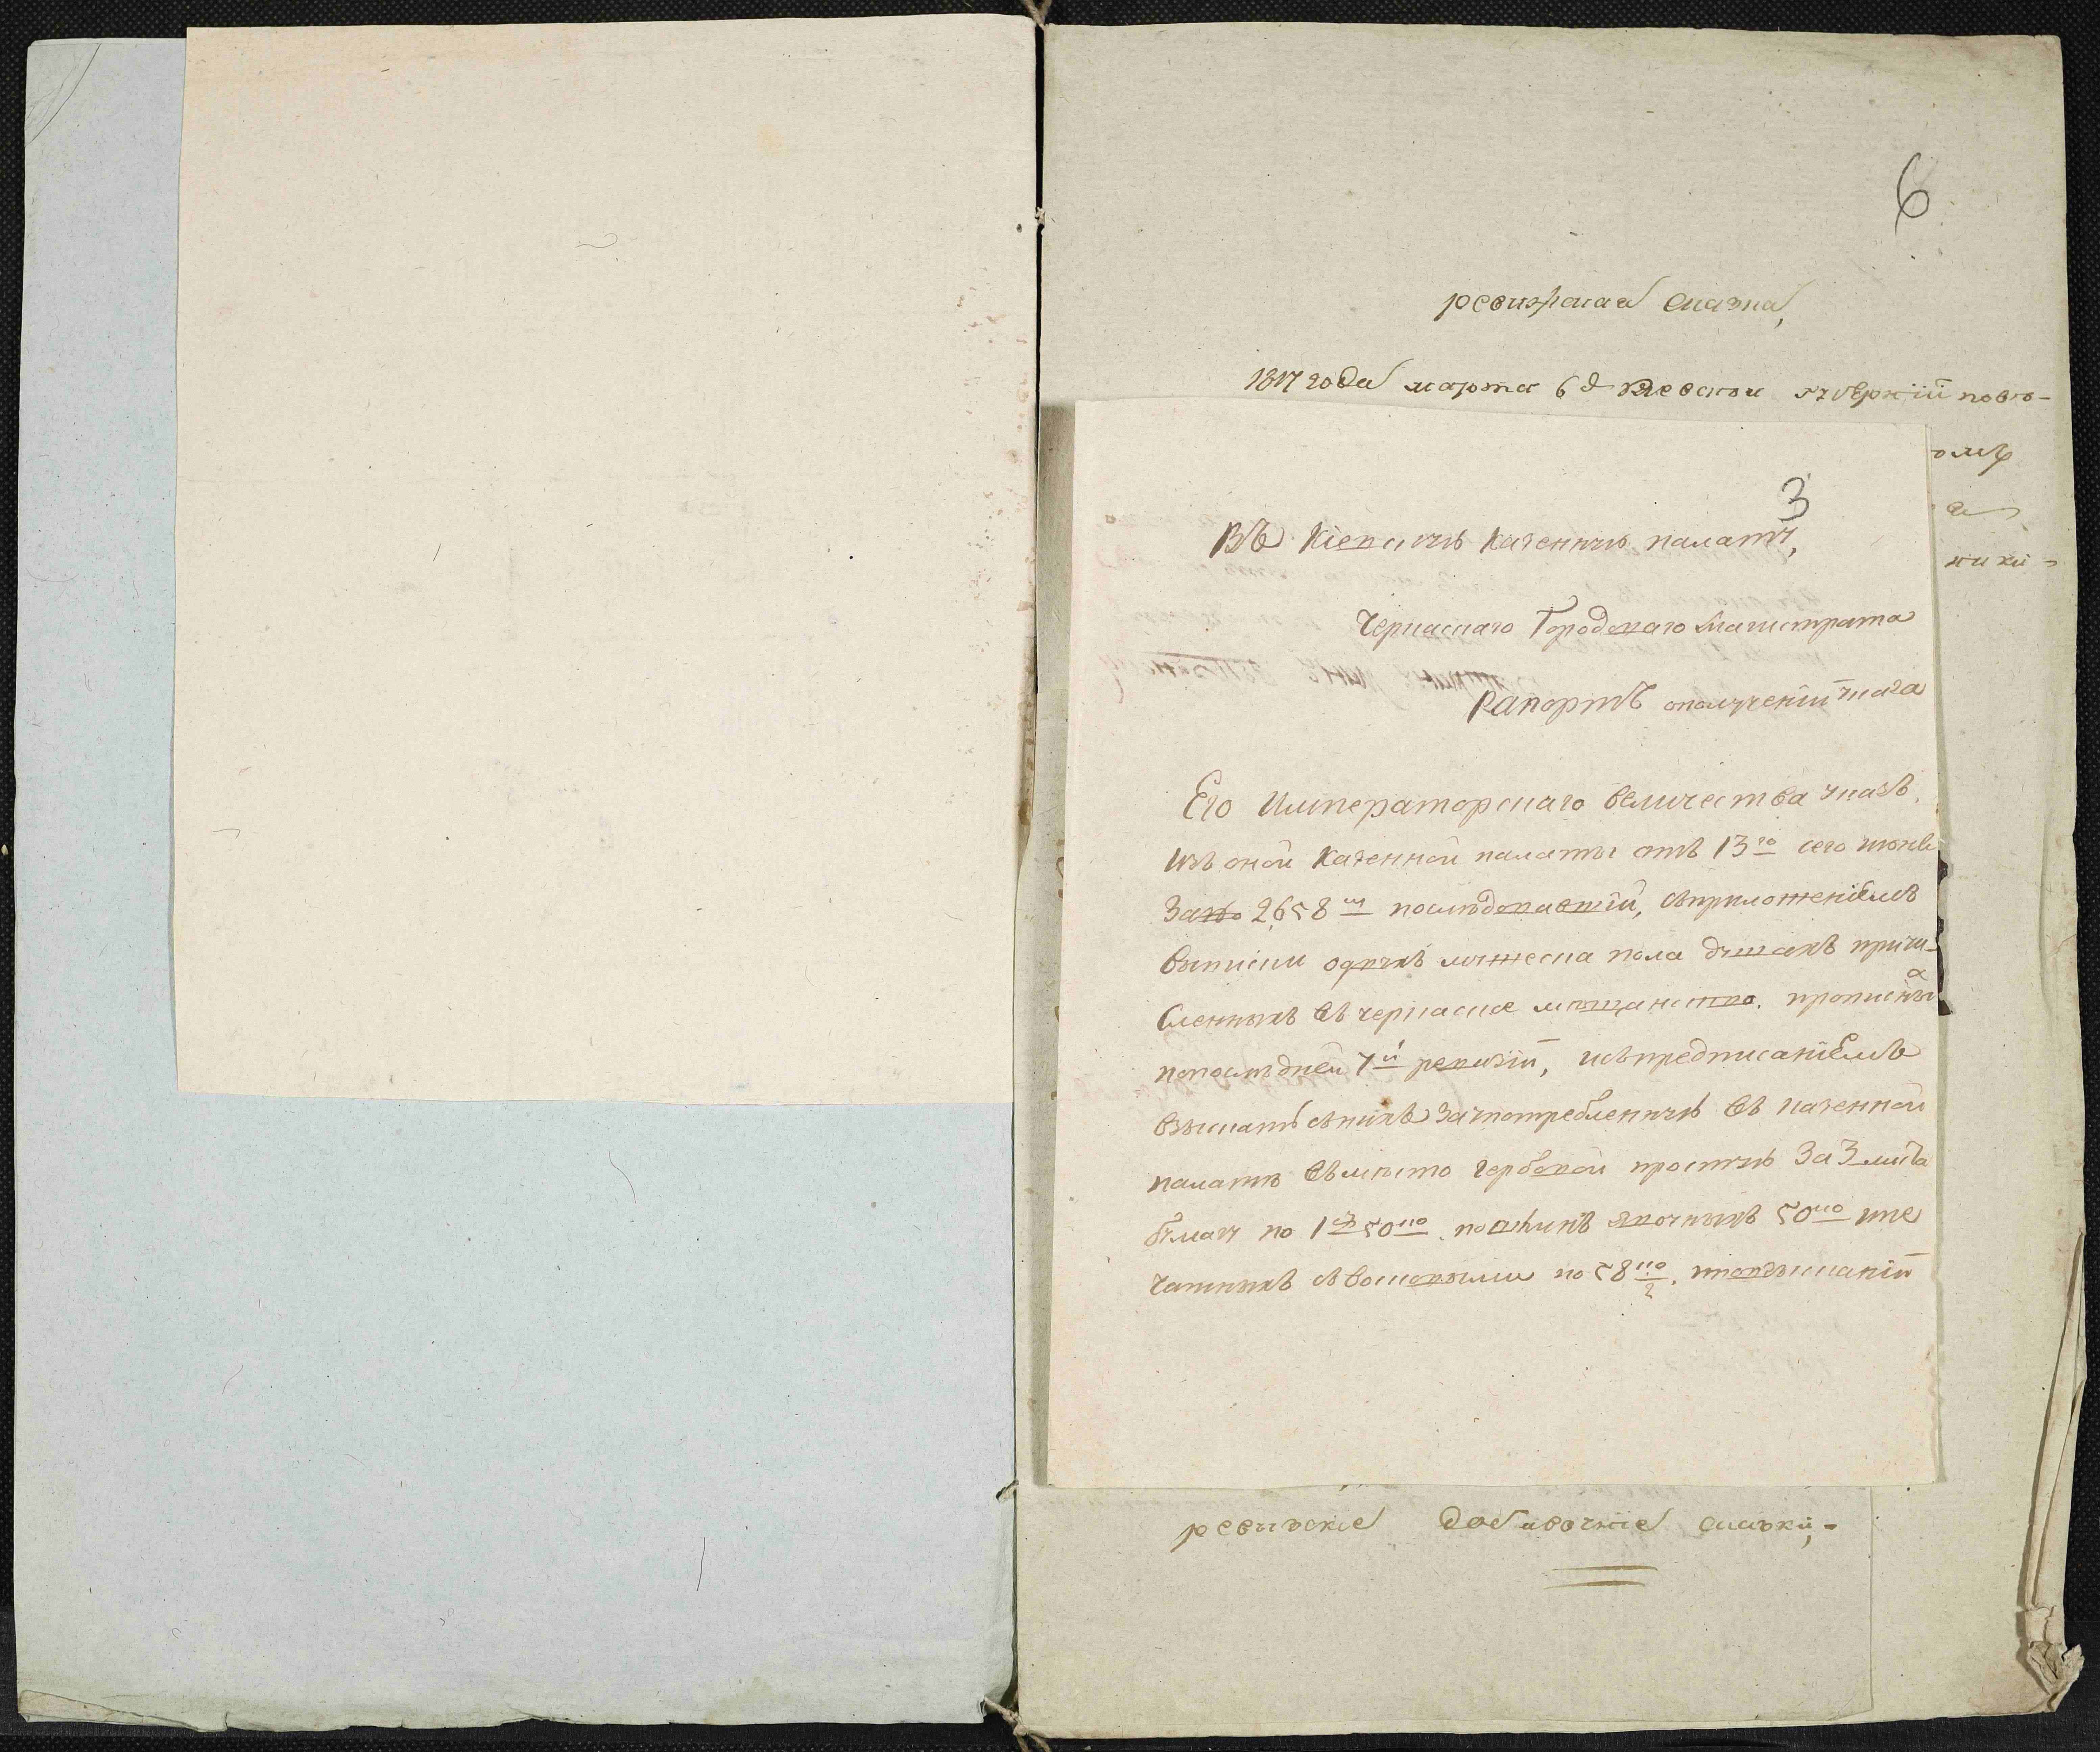 6
ревизская сказка,
1817 года марта 6 д Киевской губернїи пово-
омъ
а
ники-
3
Въ Кїевскую Казенную палату,
Черкаскаго Городскаго Магистрата
Рапортъ ополученїи указа
Его Императорскаго величества указъ
изъ оной Казенной палаты отъ 13го сего июня
За № 2,658 м последовавшїй, съприложенїемъ
выписки однехъ мужеска пола душахъ причи-
сленныхъ въ черкаское мещанство, прописныхъ
попоследней 7й ревизїи, исъпредписанїемъ
взыскать сънихъ Заупотребленную въ казенной
палате въместо гербовой простую За 3 листа
бумагу по 1 50ко, пошлинъ 50ко ипе
чатныхъ по 58 ко/2,
ревизские добавочние сказки,-